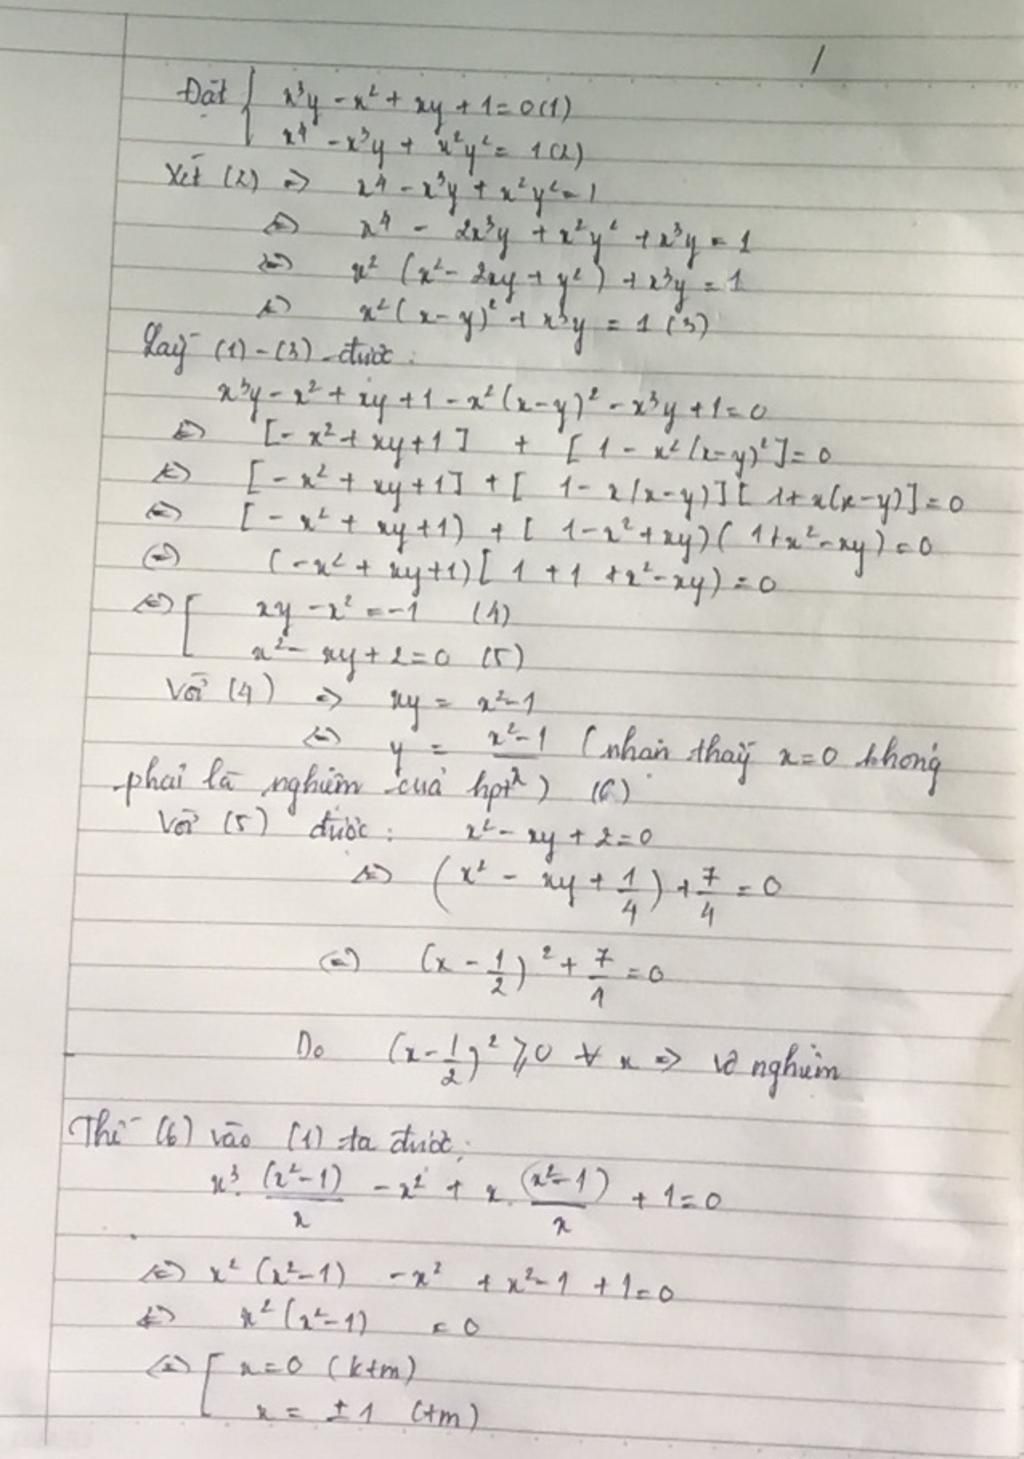 Đặt { x³y - x² + xy + 1 = 0 (1)
x⁴ - x³y + x²y² = 1 (2)
Xét (2) => x⁴ - x³y + x²y² = 1
<=> x⁴ - 2x³y + x²y² + x³y = 1
<=> x² (x² - 2xy + y²) + x³y = 1
<=> x² (x - y)² + x³y = 1 (3)
Lấy (1) - (3) được:
x³y - x² + xy + 1 - x² (x - y)² - x³y + 1 = 0
<=> [- x² + xy + 1] + [1 - x² (x - y)²] = 0
<=> [- x² + xy + 1] + [1 - x(x - y)] [1 + x(x - y)] = 0
<=> [- x² + xy + 1) + [1 - x² + xy) (1 + x² - xy) = 0
<=> (- x² + xy + 1) [1 + 1 + x² - xy) = 0
<=> [ xy - x² = -1 (4)
x² - xy + 2 = 0 (5)
Với (4) => xy = x² - 1
<=> y = x² - 1 (nhận thấy x = 0 không
phải là nghiệm của hpt) (6)
Với (5) được: x² - xy + 2 = 0
<=> (x² - xy + 1/4) + 7/4 = 0
<=> (x - 1/2)² + 7/1 = 0
Do (x - 1/2)² ≥ 0 ∀ x => vô nghiệm
Thế (6) vào (1) ta được:
x³. (x² - 1)/x - x² + x. (x² - 1)/x + 1 = 0
<=> x² (x² - 1) - x² + x² - 1 + 1 = 0
<=> x² (x² - 1) = 0
<=> [ x = 0 (ktm)
x = ± 1 (tm)